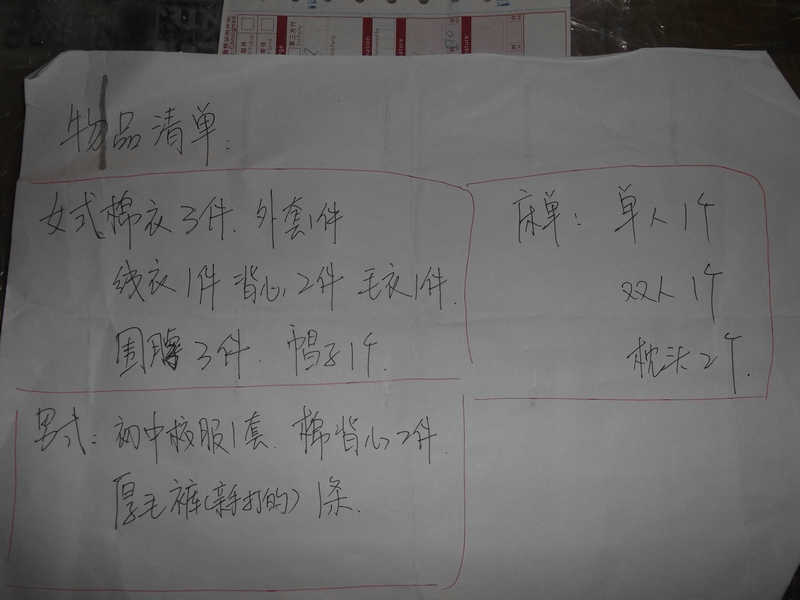 物品清单:
女式棉衣3件. 外套1件
线衣1件 背心2件 毛衣1件.
围脖3件. 帽子1个.
床单: 单人1个
双人1个
枕头2个.
男式: 初中校服1套. 棉背心2件.
厚毛裤(亲手打的) 1条.